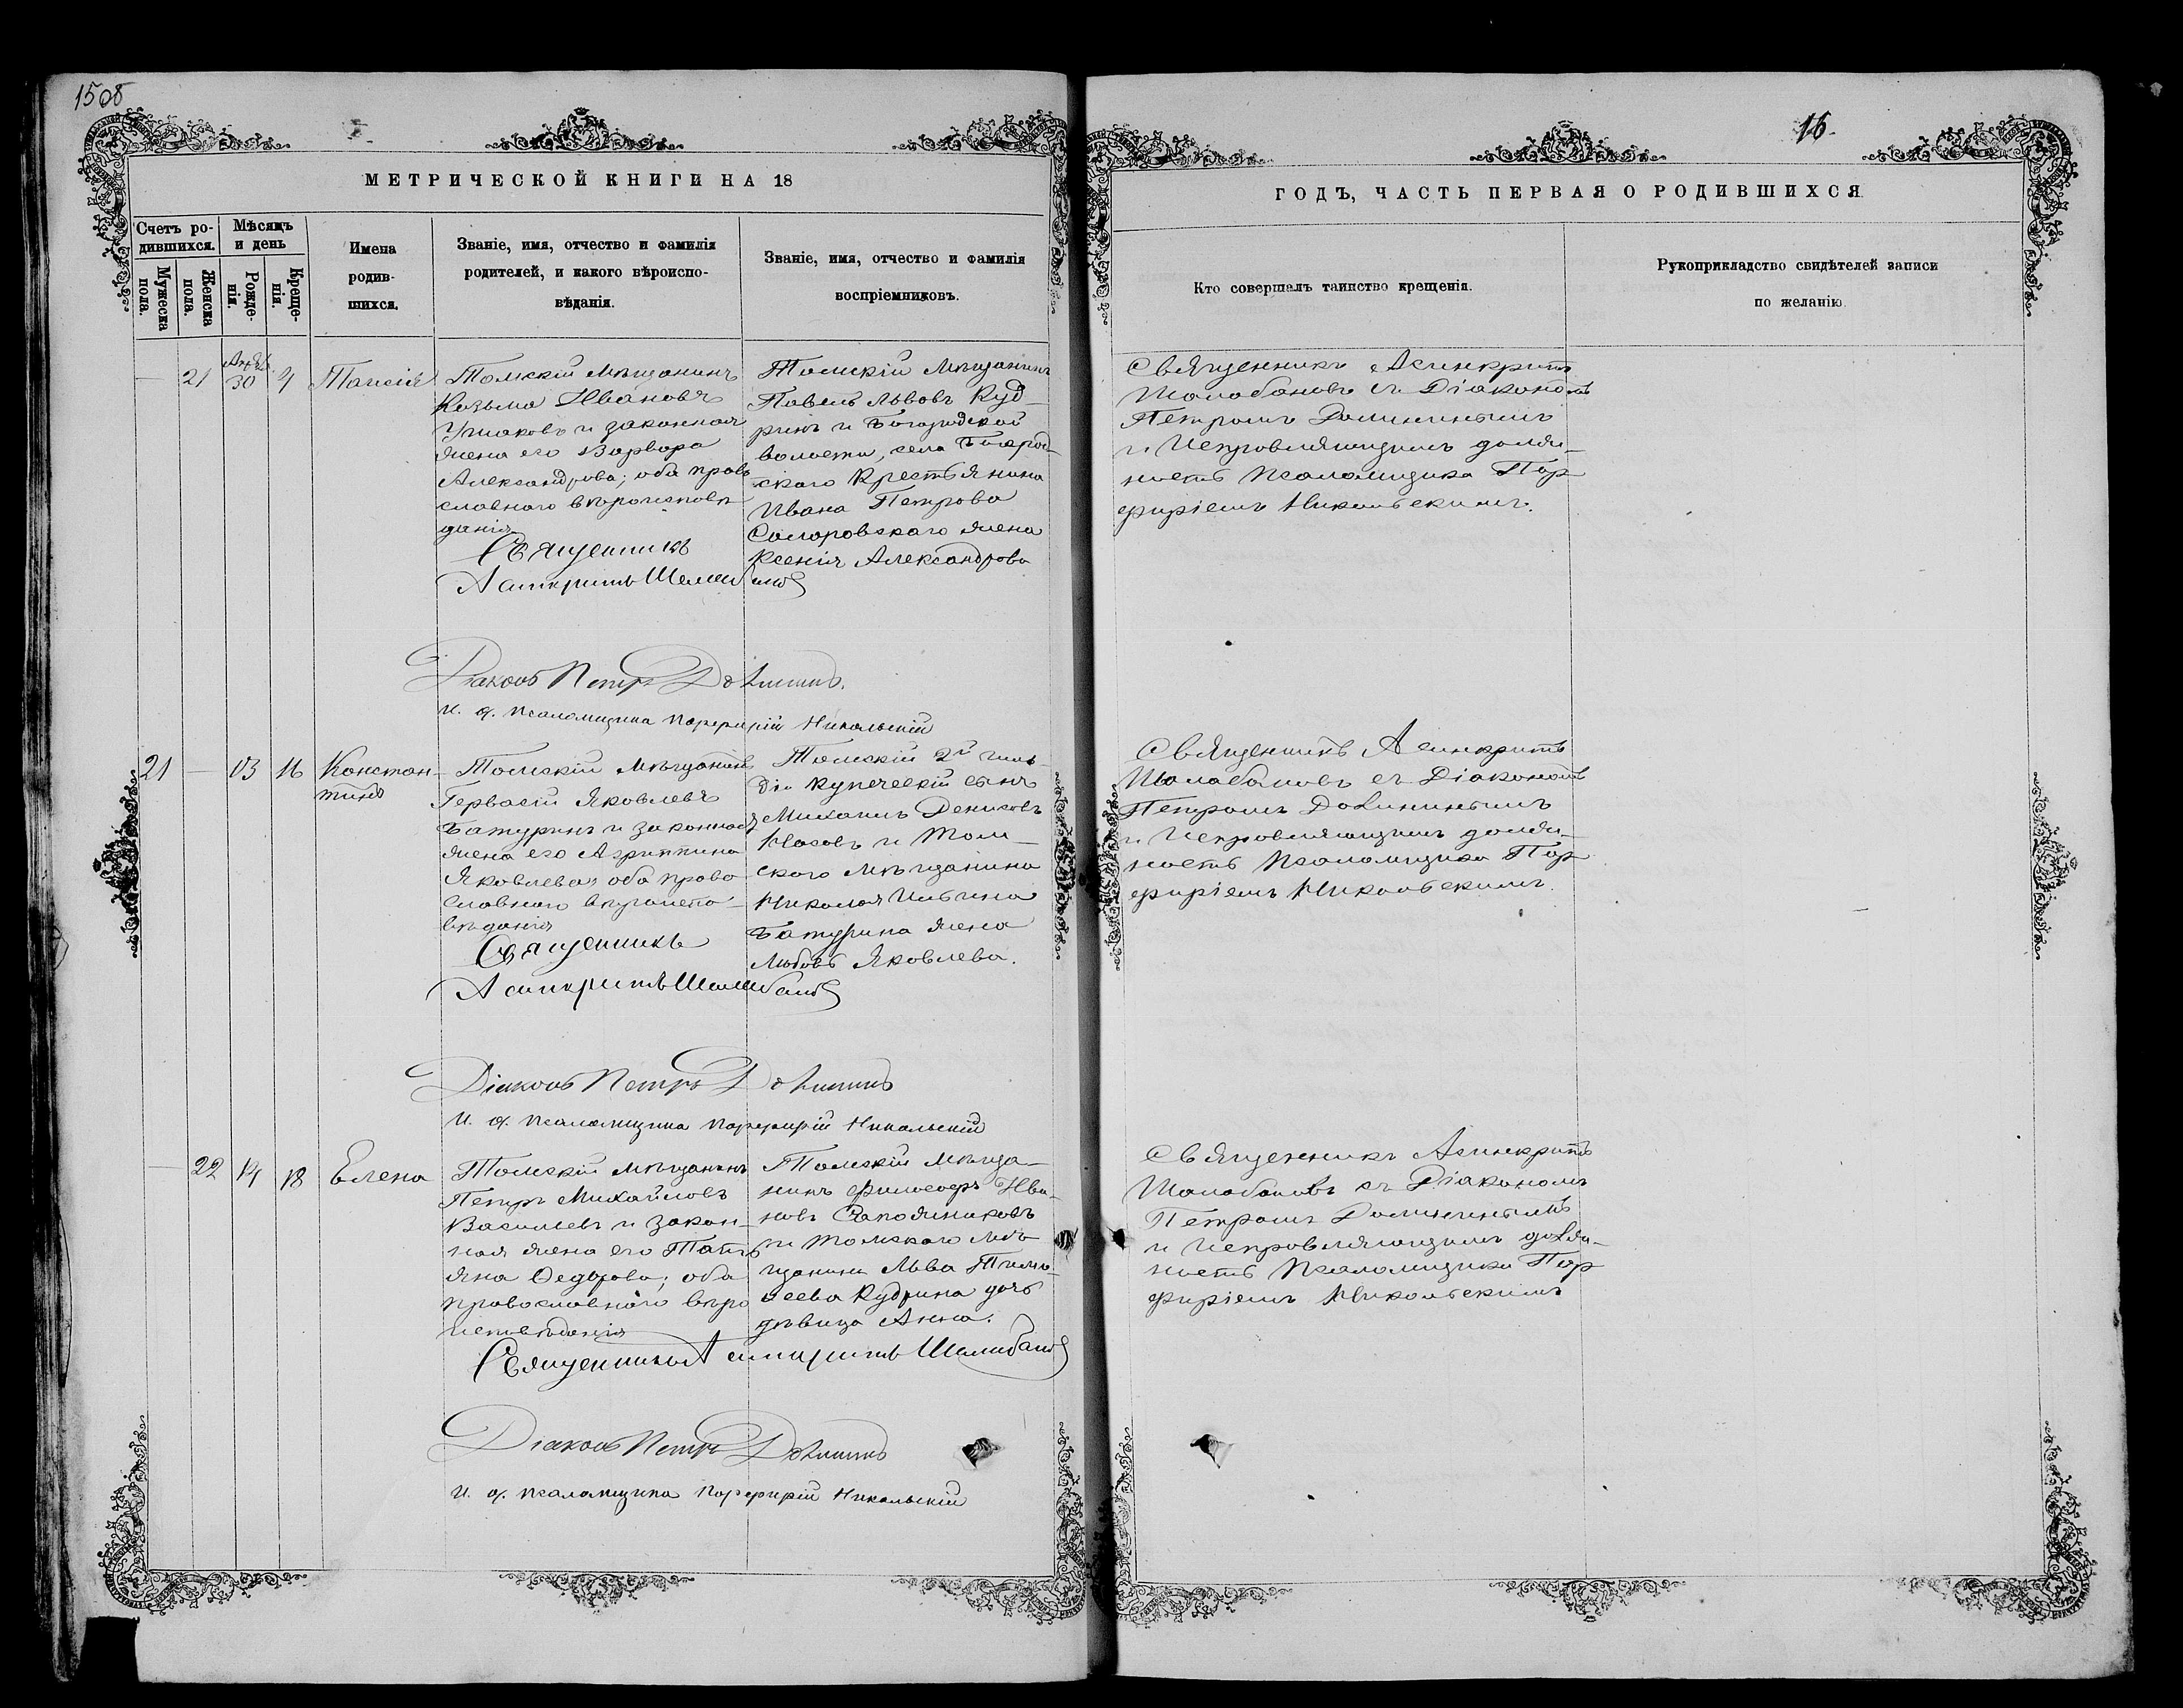 1508
16.
МЕТРИЧЕСКОЙ КНИГИ НА 18
ГОДЪ, ЧАСТЬ ПЕРВАЯ О РОДИВШИХСЯ
Счетъ ро-
дившихся.
Мужеска
пола.
Женска
пола.
Мѣсяцъ
и день
Рожде-
нія.
Креще-
нія.
Имена
родив-
шихся.
Званіе, имя, отчество и фамилія
родителей, и какого вѣроиспо-
вѣданія.
Званіе, имя, отчество и фамилія
воспріемниковъ.
Кто совершалъ таинство крещенія.
Рукоприкладство свидѣтелей записи
по желанію.
21
30
Таисія
Томскій Мѣщанинъ
Козьма Ивановъ
Ушаковъ и законная
жена его Варвара
Александрова; оба право
славного вѣроисповѣ
данія
Томскій Мѣщанинъ
Павелъ Львовъ Куд-
ринъ и
волости, села
скаго Крестьянина
Ивана Петрова
жена
Ксенія Александрова
Священникъ Асинкритъ
Шалобановъ съ Діакономъ
Петромъ
и Исправляющимъ долж-
ность Псаломщика Пор
фиріемъ Никольскимъ.
Священникъ
Асинкритъ Шалобановъ
Діаконъ Петръ
И. д. псаломщика Порфирій Никольскій
21
13
16
Констан-
тинъ
Томскій Мѣщанинъ
Гервасій Яковлевъ
Батуринъ и законная
жена его Агриппина
Яковлева, оба право
славного вѣроиспо-
вѣданія
Томскій 2й гиль-
діи Купеческій сынъ
Михаилъ Денисовъ
Носовъ и Том-
ского Мѣщанина
Николая Ильина
Батурина жена
Любовь Яковлева.
Священникъ Асинкритъ
Шалабановъ съ Діакономъ
Петромъ
и Исправляющимъ долж-
ность Псаломщика Пор
фиріемъ Никольскимъ.
Священникъ
Асинкритъ Шалобановъ
Діаконъ Петръ
И. д. псаломщика Порфирій Никольскій
22
14
18
Елена
Томскій Мѣщанинъ
Петръ Михайловъ
Васильевъ и закон-
ная жена его Тать
яна Ѳедорова; оба
православного вѣро
исповѣданія
Томскій Мѣща-
нинъ Философъ Ива-
новъ Сапожниковъ
и Томскаго Мѣ-
щанина Льва Тимо-
ѳеева Кудрина дочь
дѣвица Анна.
Священникъ Асинкритъ
Шалобановъ съ Діакономъ
Петромъ
и Исправляющимъ долж-
ность Псаломщика Пор
фиріемъ Никольскимъ
Священникъ Асинкритъ Шалобановъ
Діаконъ Петръ
И. д. псаломщика Порфирій Никольскій